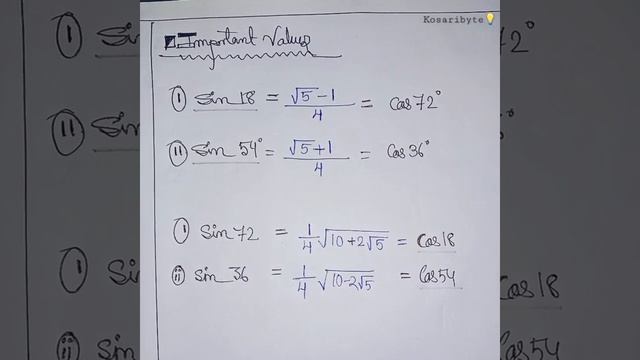 Kosaribyte💡
Important Values
(i) Sin 18 = (√5 - 1)/4 = Cos 72°
(ii) Sin 54° = (√5 + 1)/4 = Cos 36°
(i) Sin 72 = 1/4 √(10 + 2√5) = Cos 18
(ii) Sin 36 = 1/4 √(10 - 2√5) = Cos 54